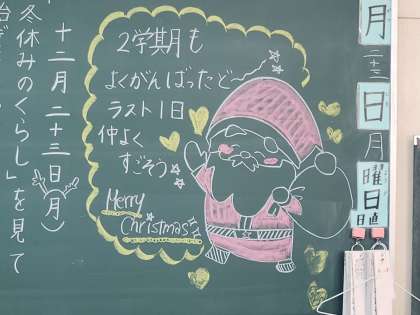 2学期も
よくがんばったど〜
ラスト1日
仲よく
すごそう
Merry
Christmas
月
二十三
日
月
曜日
日直
十二月二十三日(月)
冬休みのくらし」を見て